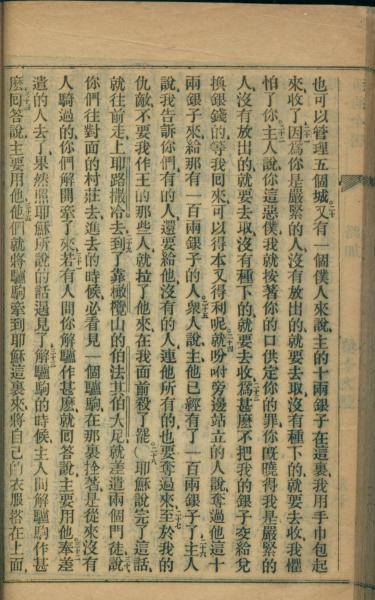 也可以管理五個城、二十又有一個僕人來說、主的十兩銀子在這裏、我用手巾包起
來收了、二十一因爲你是嚴緊的人、沒有放出的、就要去取、沒有種下的、就要去收、我懼
怕了你、二十二主人說、你這惡僕、我就按著你的口供定你的罪、你旣曉得我是嚴緊的
人、沒有放出的就要去取、沒有種下的、就要去收、二十三爲甚麽不把我的銀子交給兌
換銀錢的、等我囘來、可以得本又得利呢、二十四就吩咐旁邊站立的人說、奪過他這十
兩銀子來、給那有一百兩銀子的人、二十五衆人說、主、他已經有了一百兩銀子了、二十六主人
說、我告訴你們、有的人、還要給他、沒有的人、連他所有的、也要奪過來、二十七至於我的
仇敵、不要我作王的那些人、就拉了他來、在我面前殺了罷、〇二十八耶穌說完了這話、
就往前走、上耶路撒冷去、二十九到了靠橄欖山的伯法其伯大尼、就差遣兩個門徒說、三十
你們往對面的村莊去、進去的時候、必看見一個驢駒、在那裏拴著、是從來沒有
人騎過的、你們解開牽了來、三十一若有人問你解驢作甚麽、就囘答說、主要用他、三十二奉差
遣的人去了、果然照耶穌所說的話遇見了、三十三解驢駒的時候、主人問解驢駒作甚
麽、三十四囘答說、主要用他、三十五他們就將驢駒牽到耶穌這裏來、將自己的衣服搭在上面、